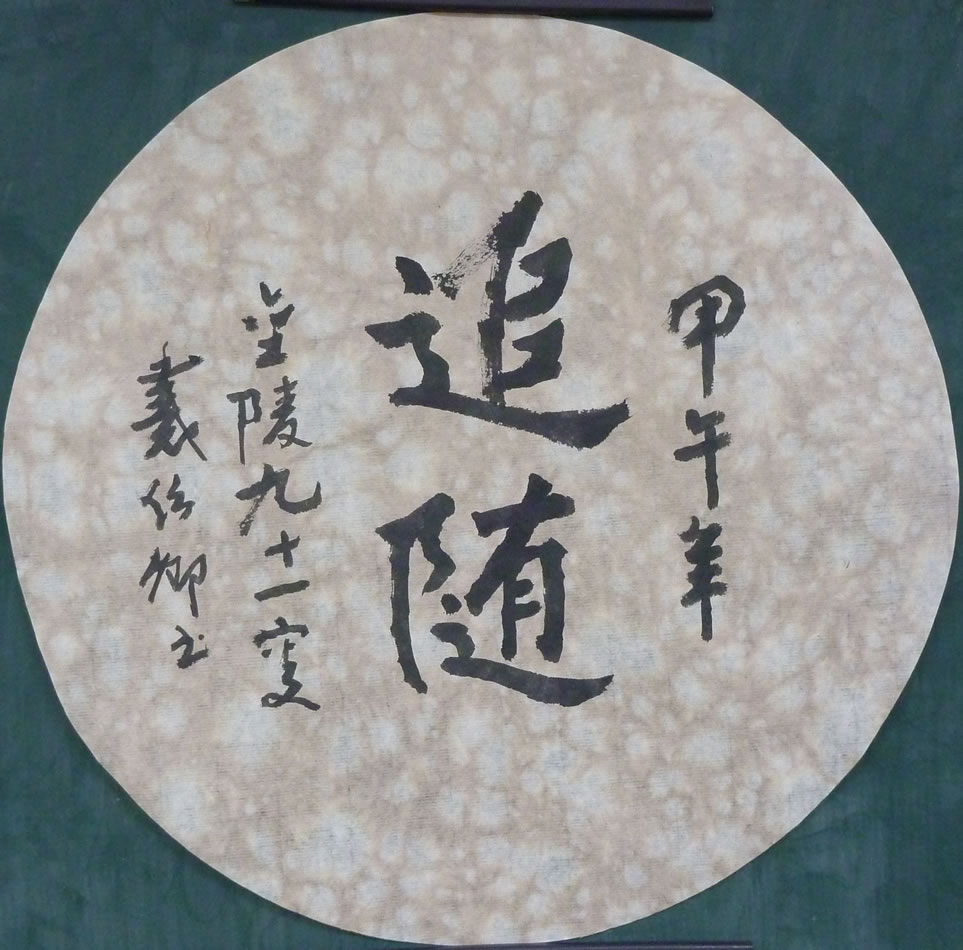 甲午年
追随
金陵九十一叟
戴 卿书